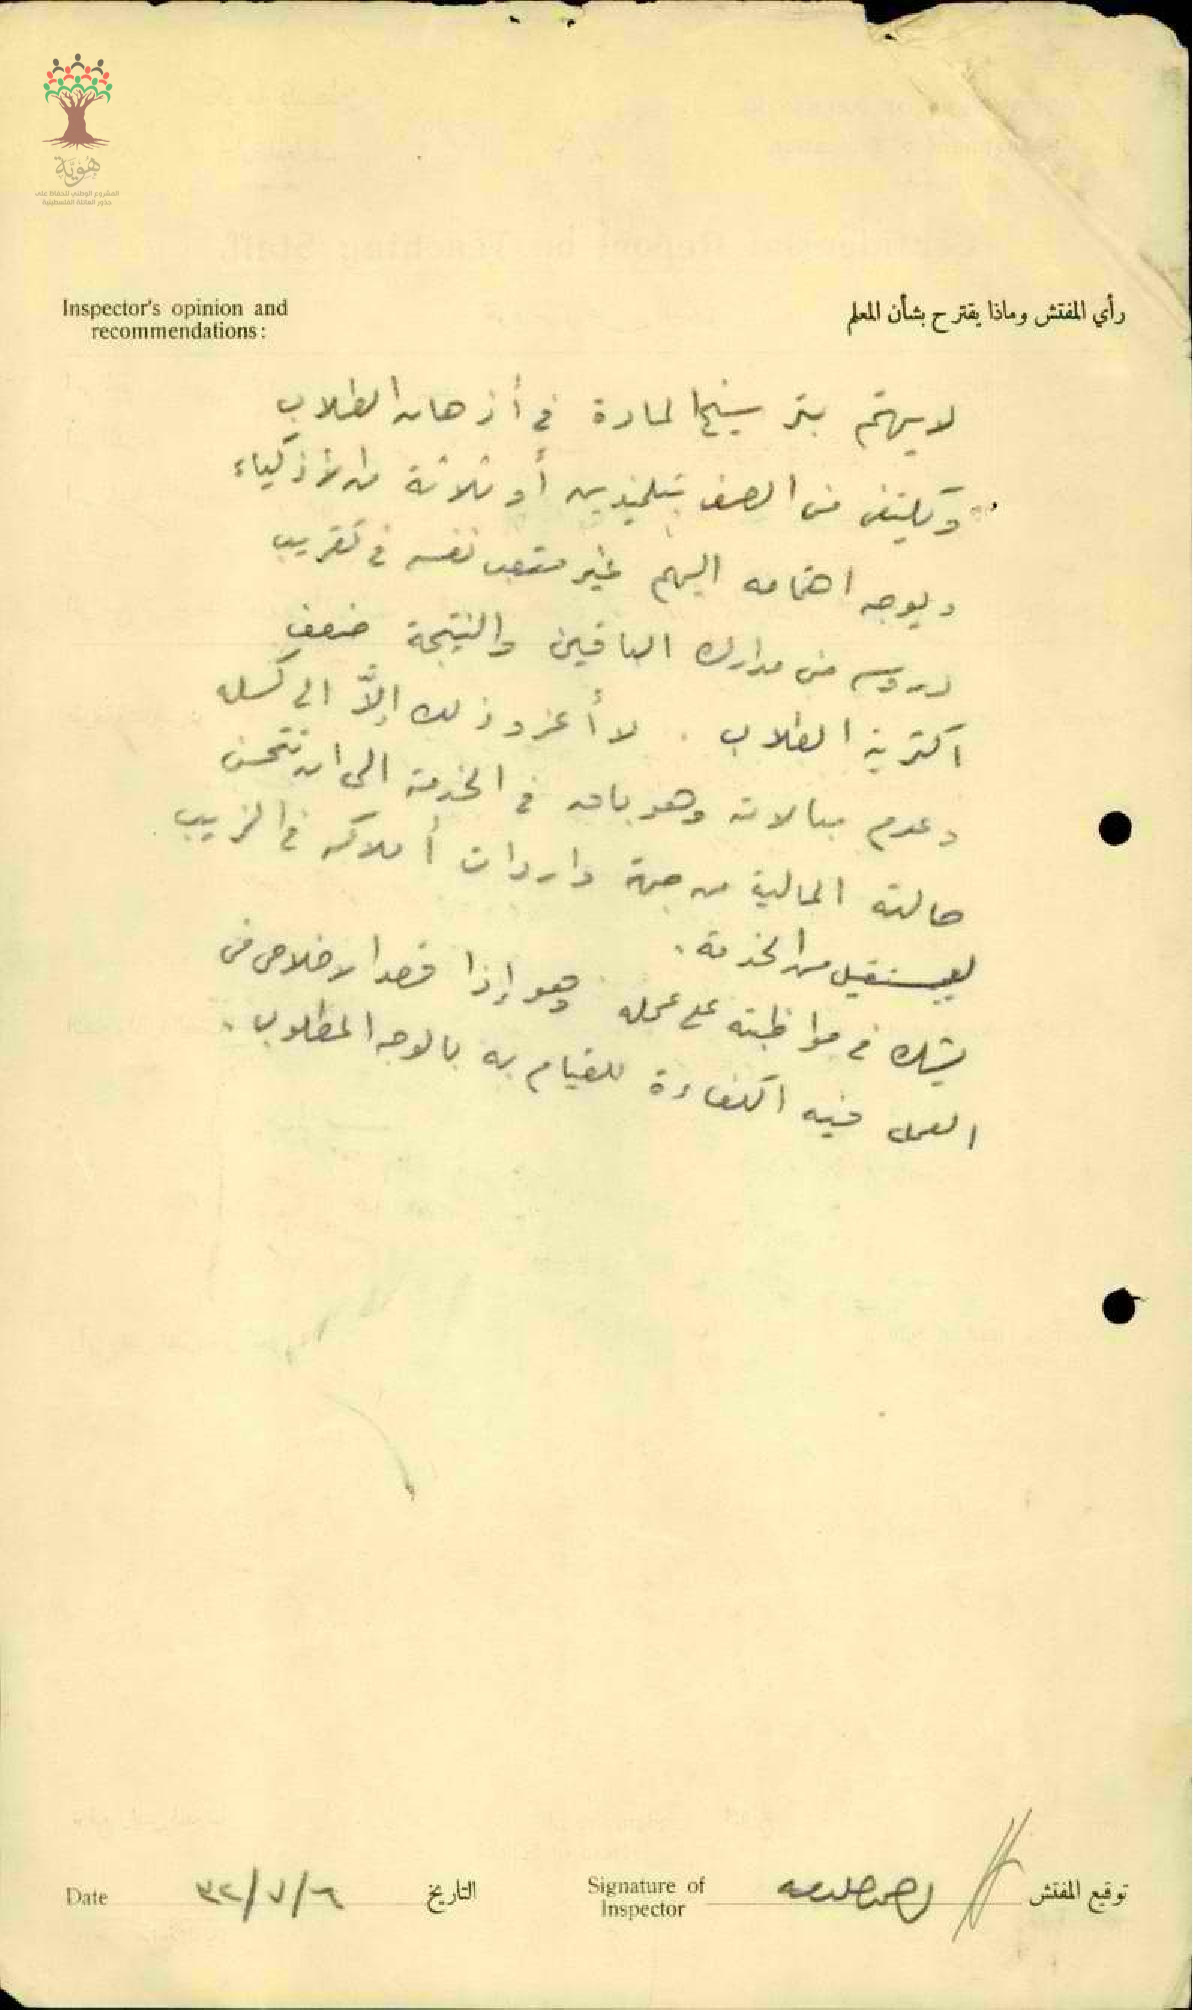 هُوِيَّة
المشروع الوطني للحفاظ على
جذور العائلة الفلسطينية
Inspector's opinion and
recommendations:
رأي المفتش وماذا يقترح بشأن المعلم
لا يهتم بترسيخ المادة في أذهان الطلاب
ويكتفى من الصف بتلميذين أو ثلاثة من الأذكياء
ويوجه اهتمامه اليهم غير متعب نفسه في تقريب
دروسه من مدارك الباقين والنتيجة ضعف
اكثرية الطلاب . لا أعزو ذلك إلاَّ الى كسله
وعدم مبالاته وهو باق في الخدمة الى ان تتحسن
حالته المالية من جهة واردات أملاكه في الزيب
ليستقيل من الخدمة .
يشك في مواظبته على عمله وهو إذا قصد الاخلاص في
العمل فيه الكفاءة للقيام به بالوجه المطلوب .
Date
٦/٧/٣٢
التاريخ
Signature of
Inspector
توقيع المفتش